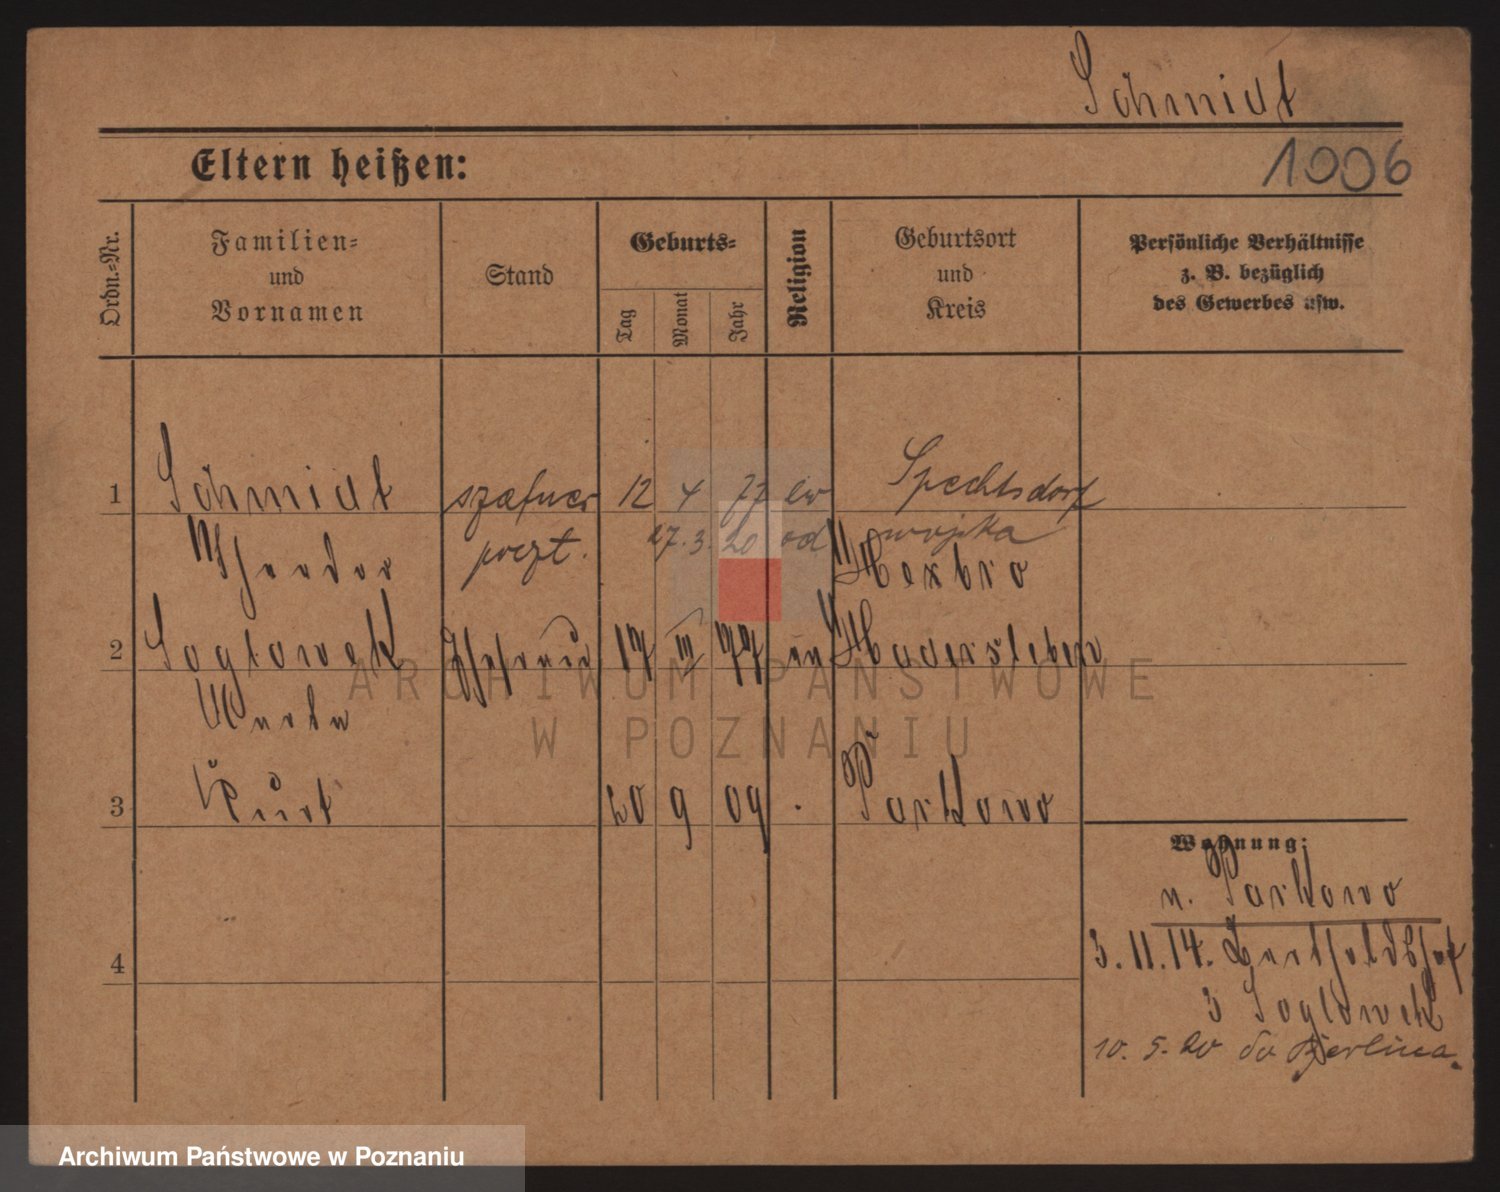 Schmidt
Eltern heißen:
1006
Ordn.=Nr.
Familien=
und
Vornamen
Stand
Geburts=
Tag
Monat
Jahr
Religion
Geburtsort
und
Kreis
Persönliche Verhältnisse
z. B. bezüglich
des Gewerbes usw.
1 Schmidt 12 4 77 ew Spechtsdorf
Theodor poczt. 27.3. 20 od wojska
2 Soglowek Ehefrau 17 III 77 Hadersleben
Marta
3 Kurt 20 9 09 . Parkowo
Wohnung:
n. Parkowo
3.11.14. Bertholdshof
3 Soglowek
4
10. 5. 20 do Berlina.
ARCHIWUM PAŃSTWOWE
W POZNANIU
Archiwum Państwowe w Poznaniu